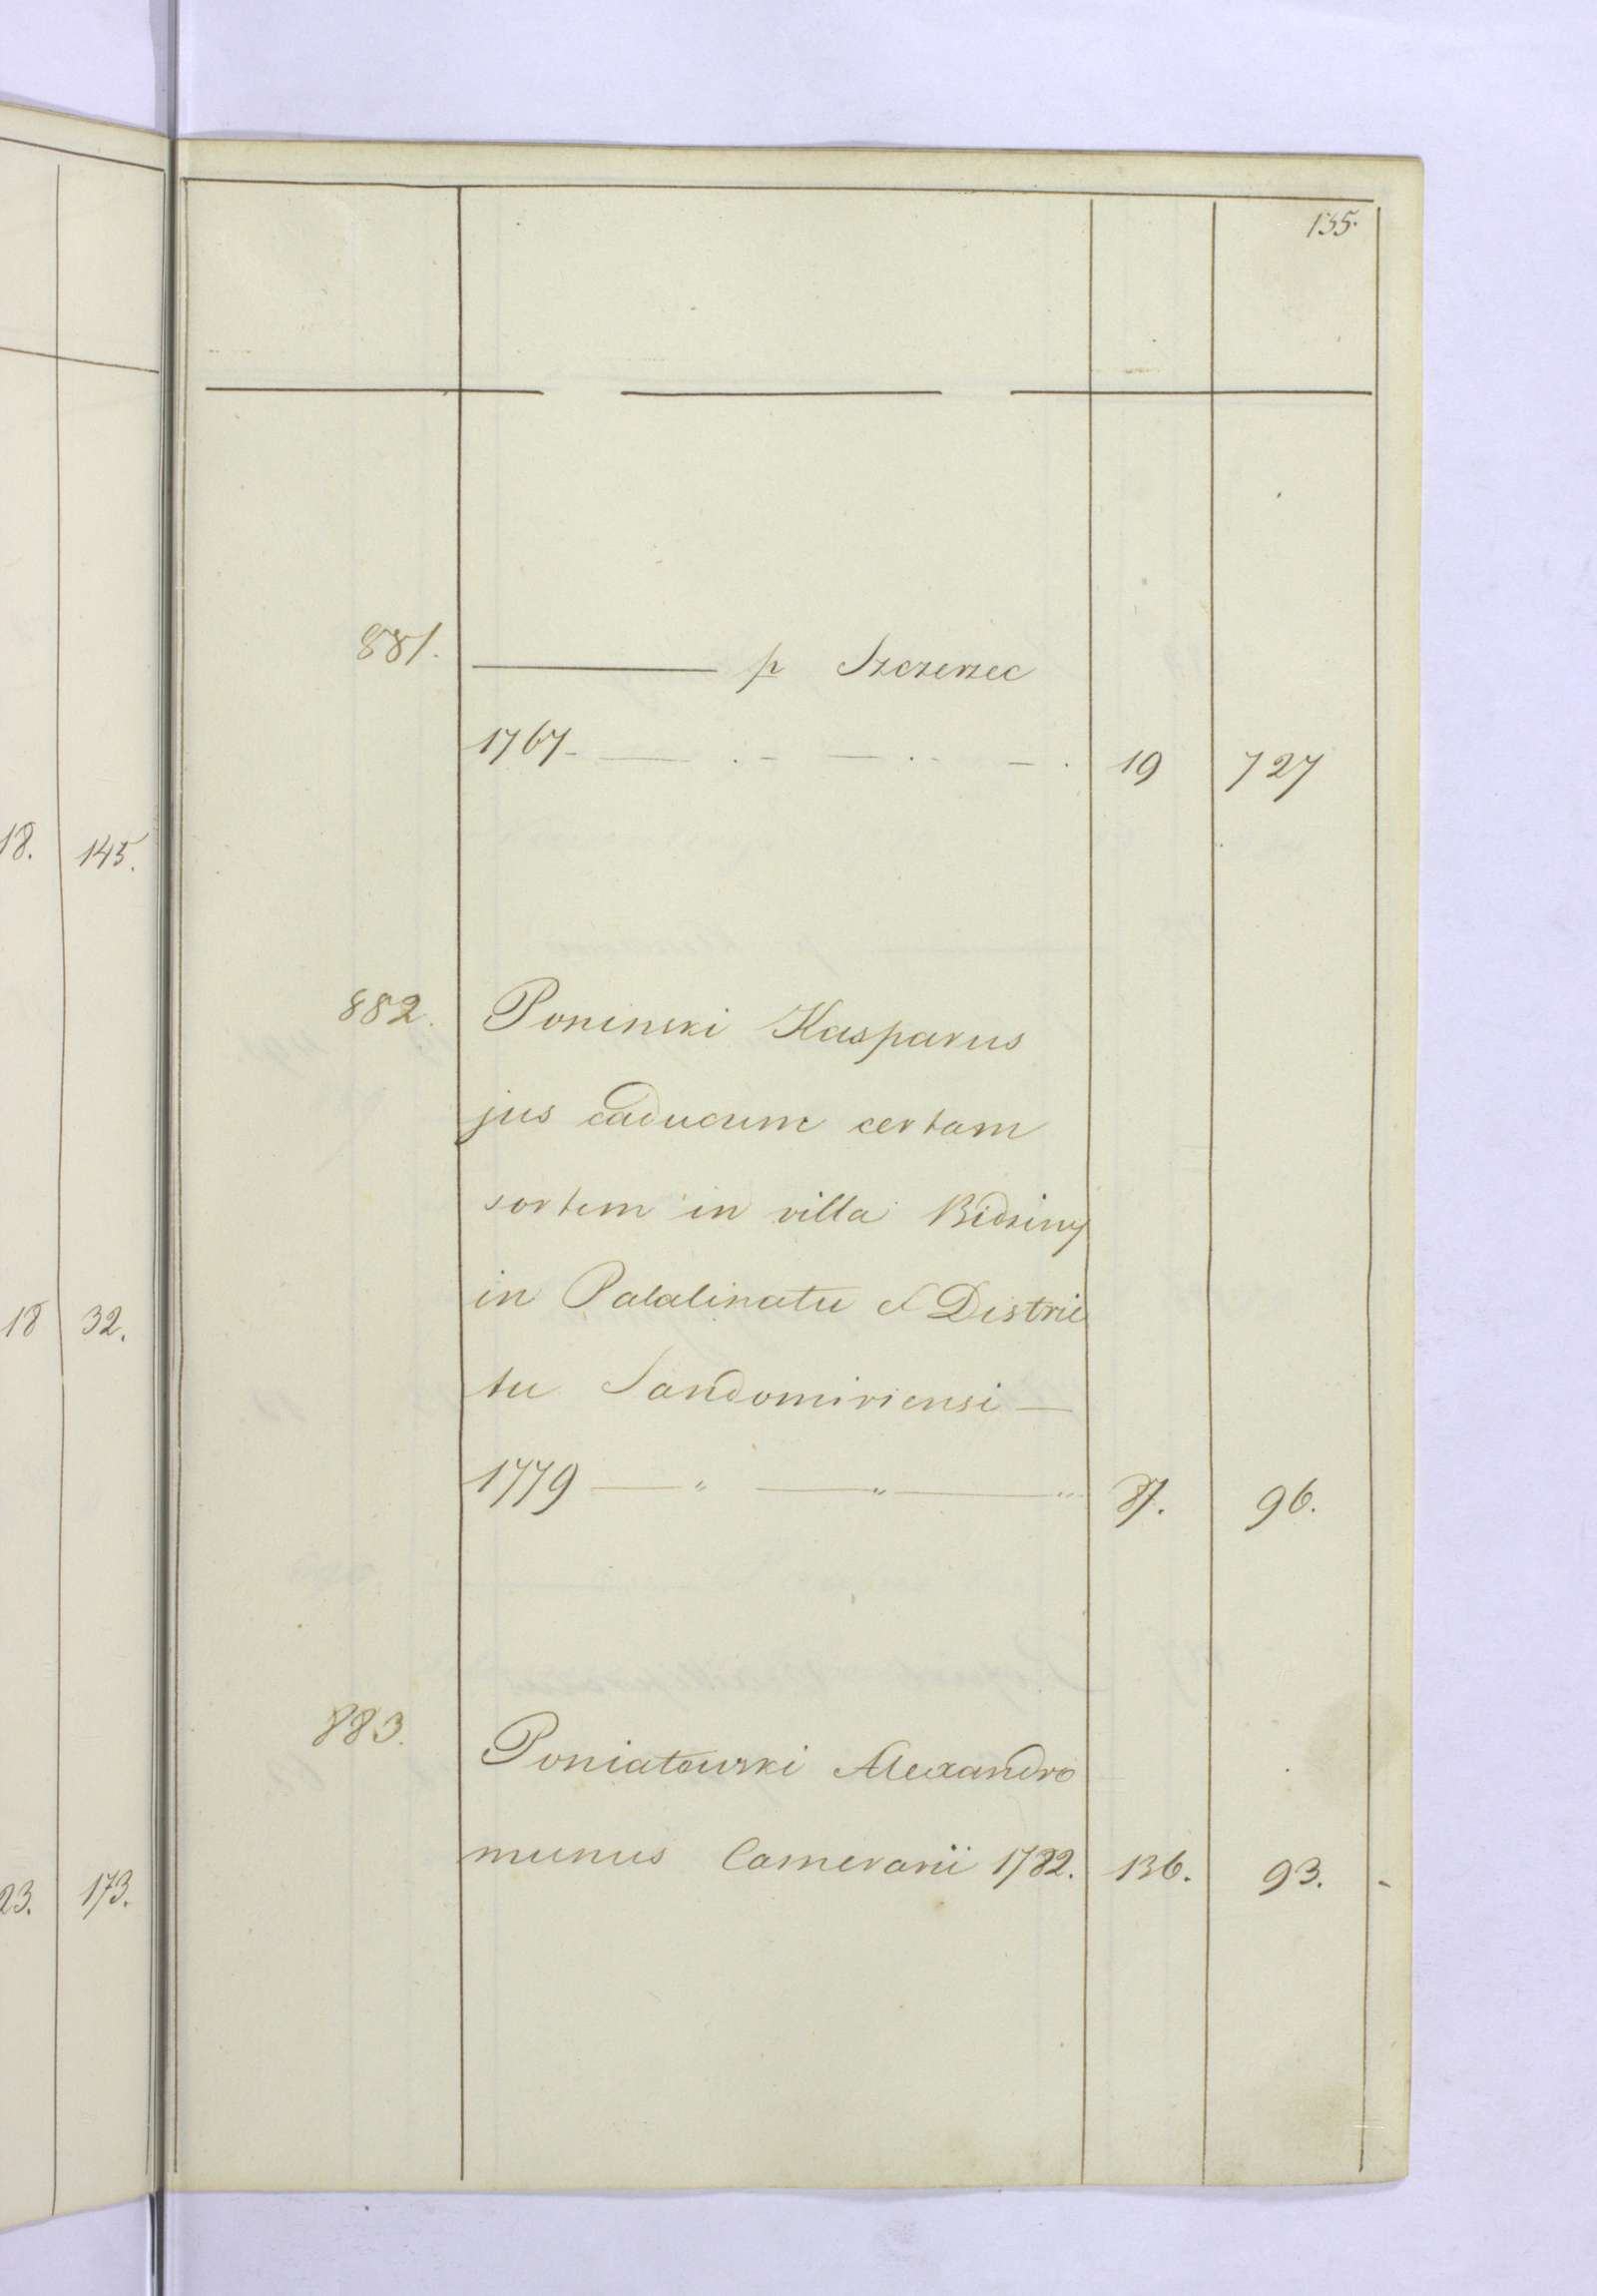 135.
881. ——— p Szczerzec
1767 — — . - — . - — . 19 727
18. 145.
882. Poninski Kasparus
jus caducum certam
sortem in villa Bidziny
in Palatinatu et Distric
18 32.
tu Sandomiriensi —
1779 — " — " — " 87. 96.
883. Poniatowski Alexandro
munus Camerarii 1782. 136. 93. -
23. 173.